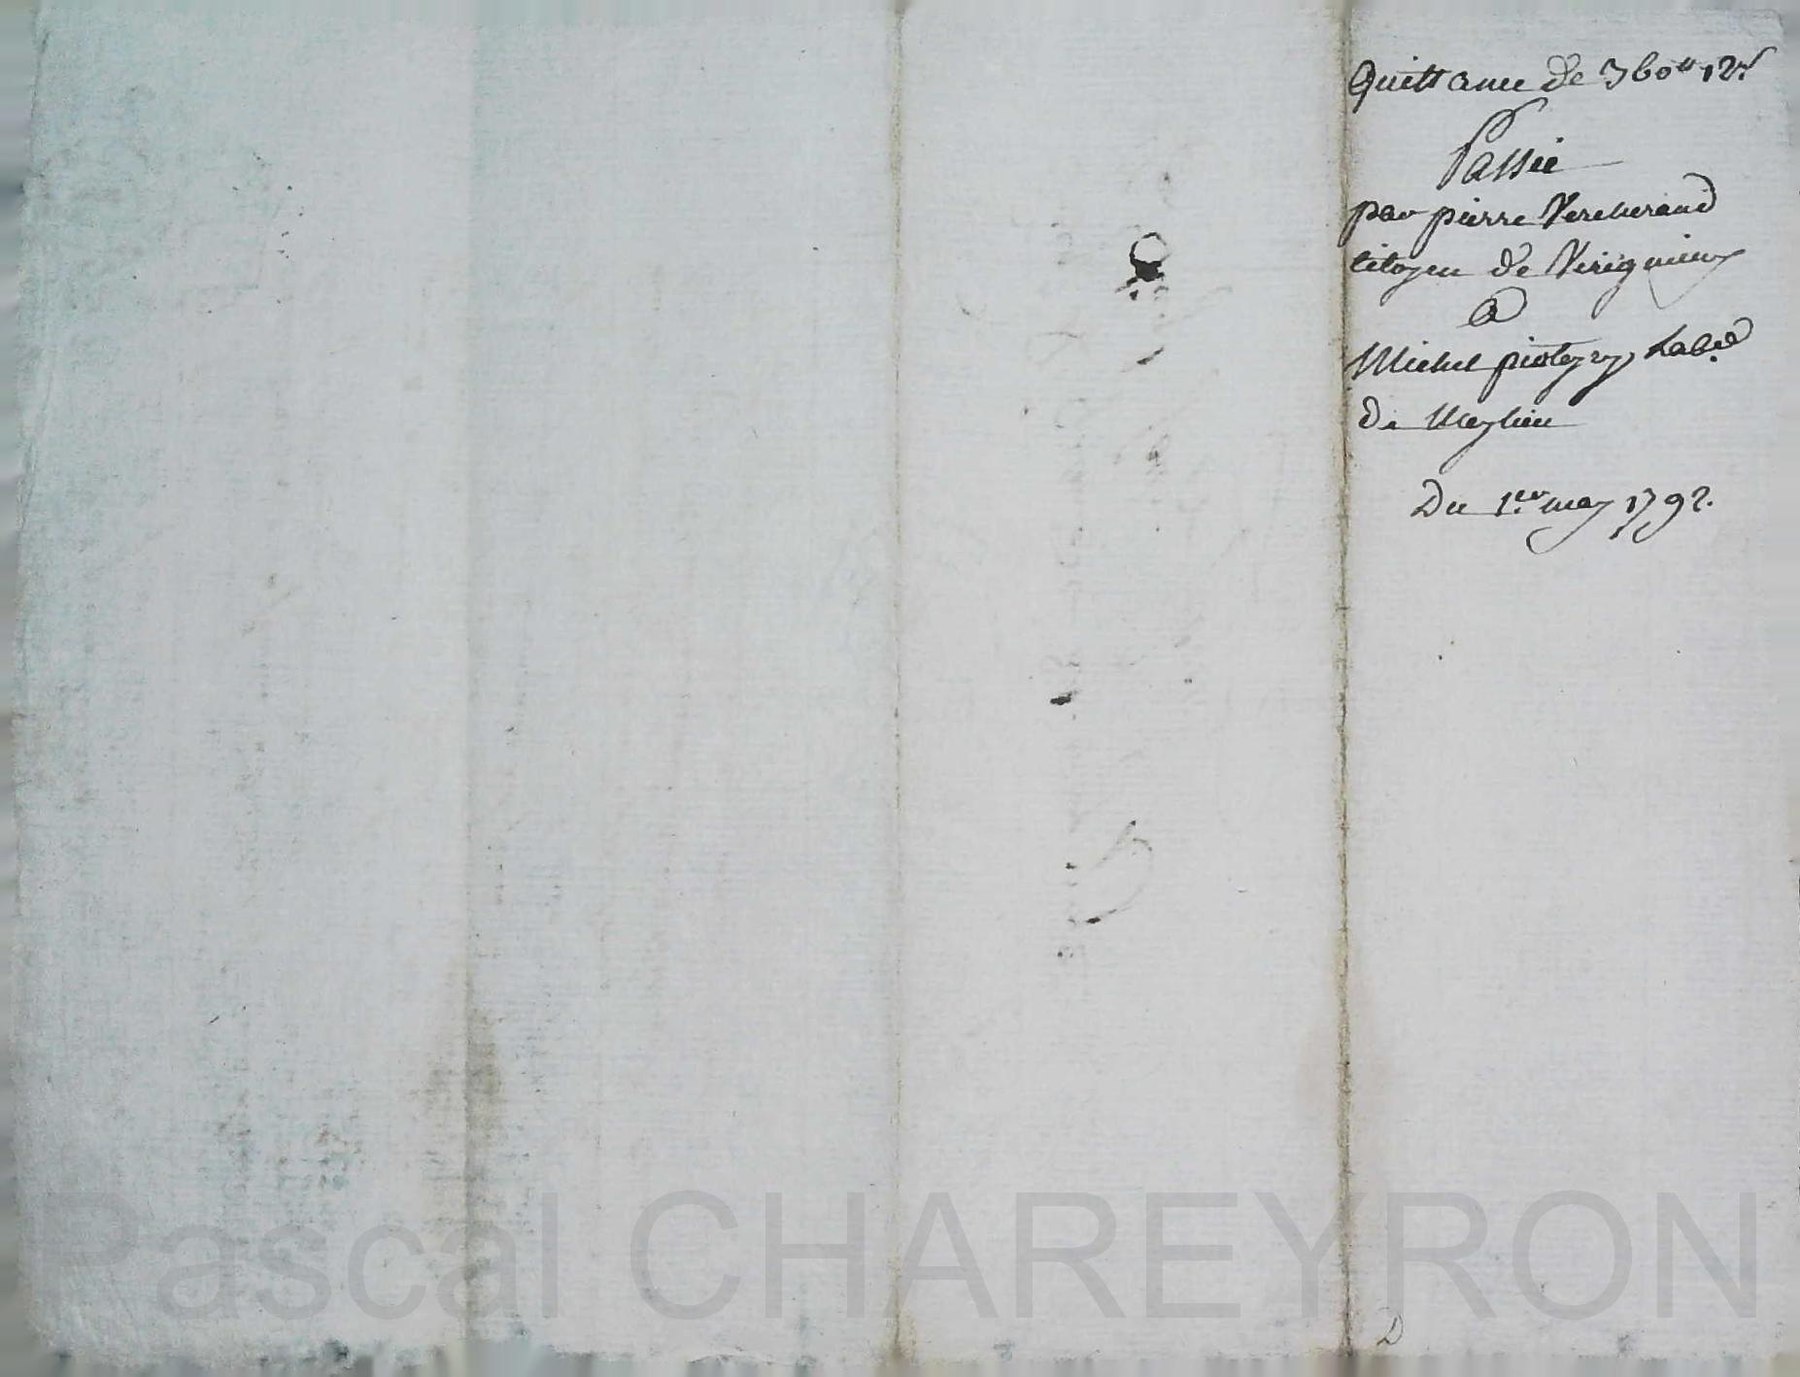 Quittance de 360ᵗᵗ 12ˢ
Passée
par pierre Vercherand
citoyen de Verignieux
a
Michel pioteyry Labᵈ
de Meylieu
Du 1.er may 1792.
D
Pascal CHAREYRON